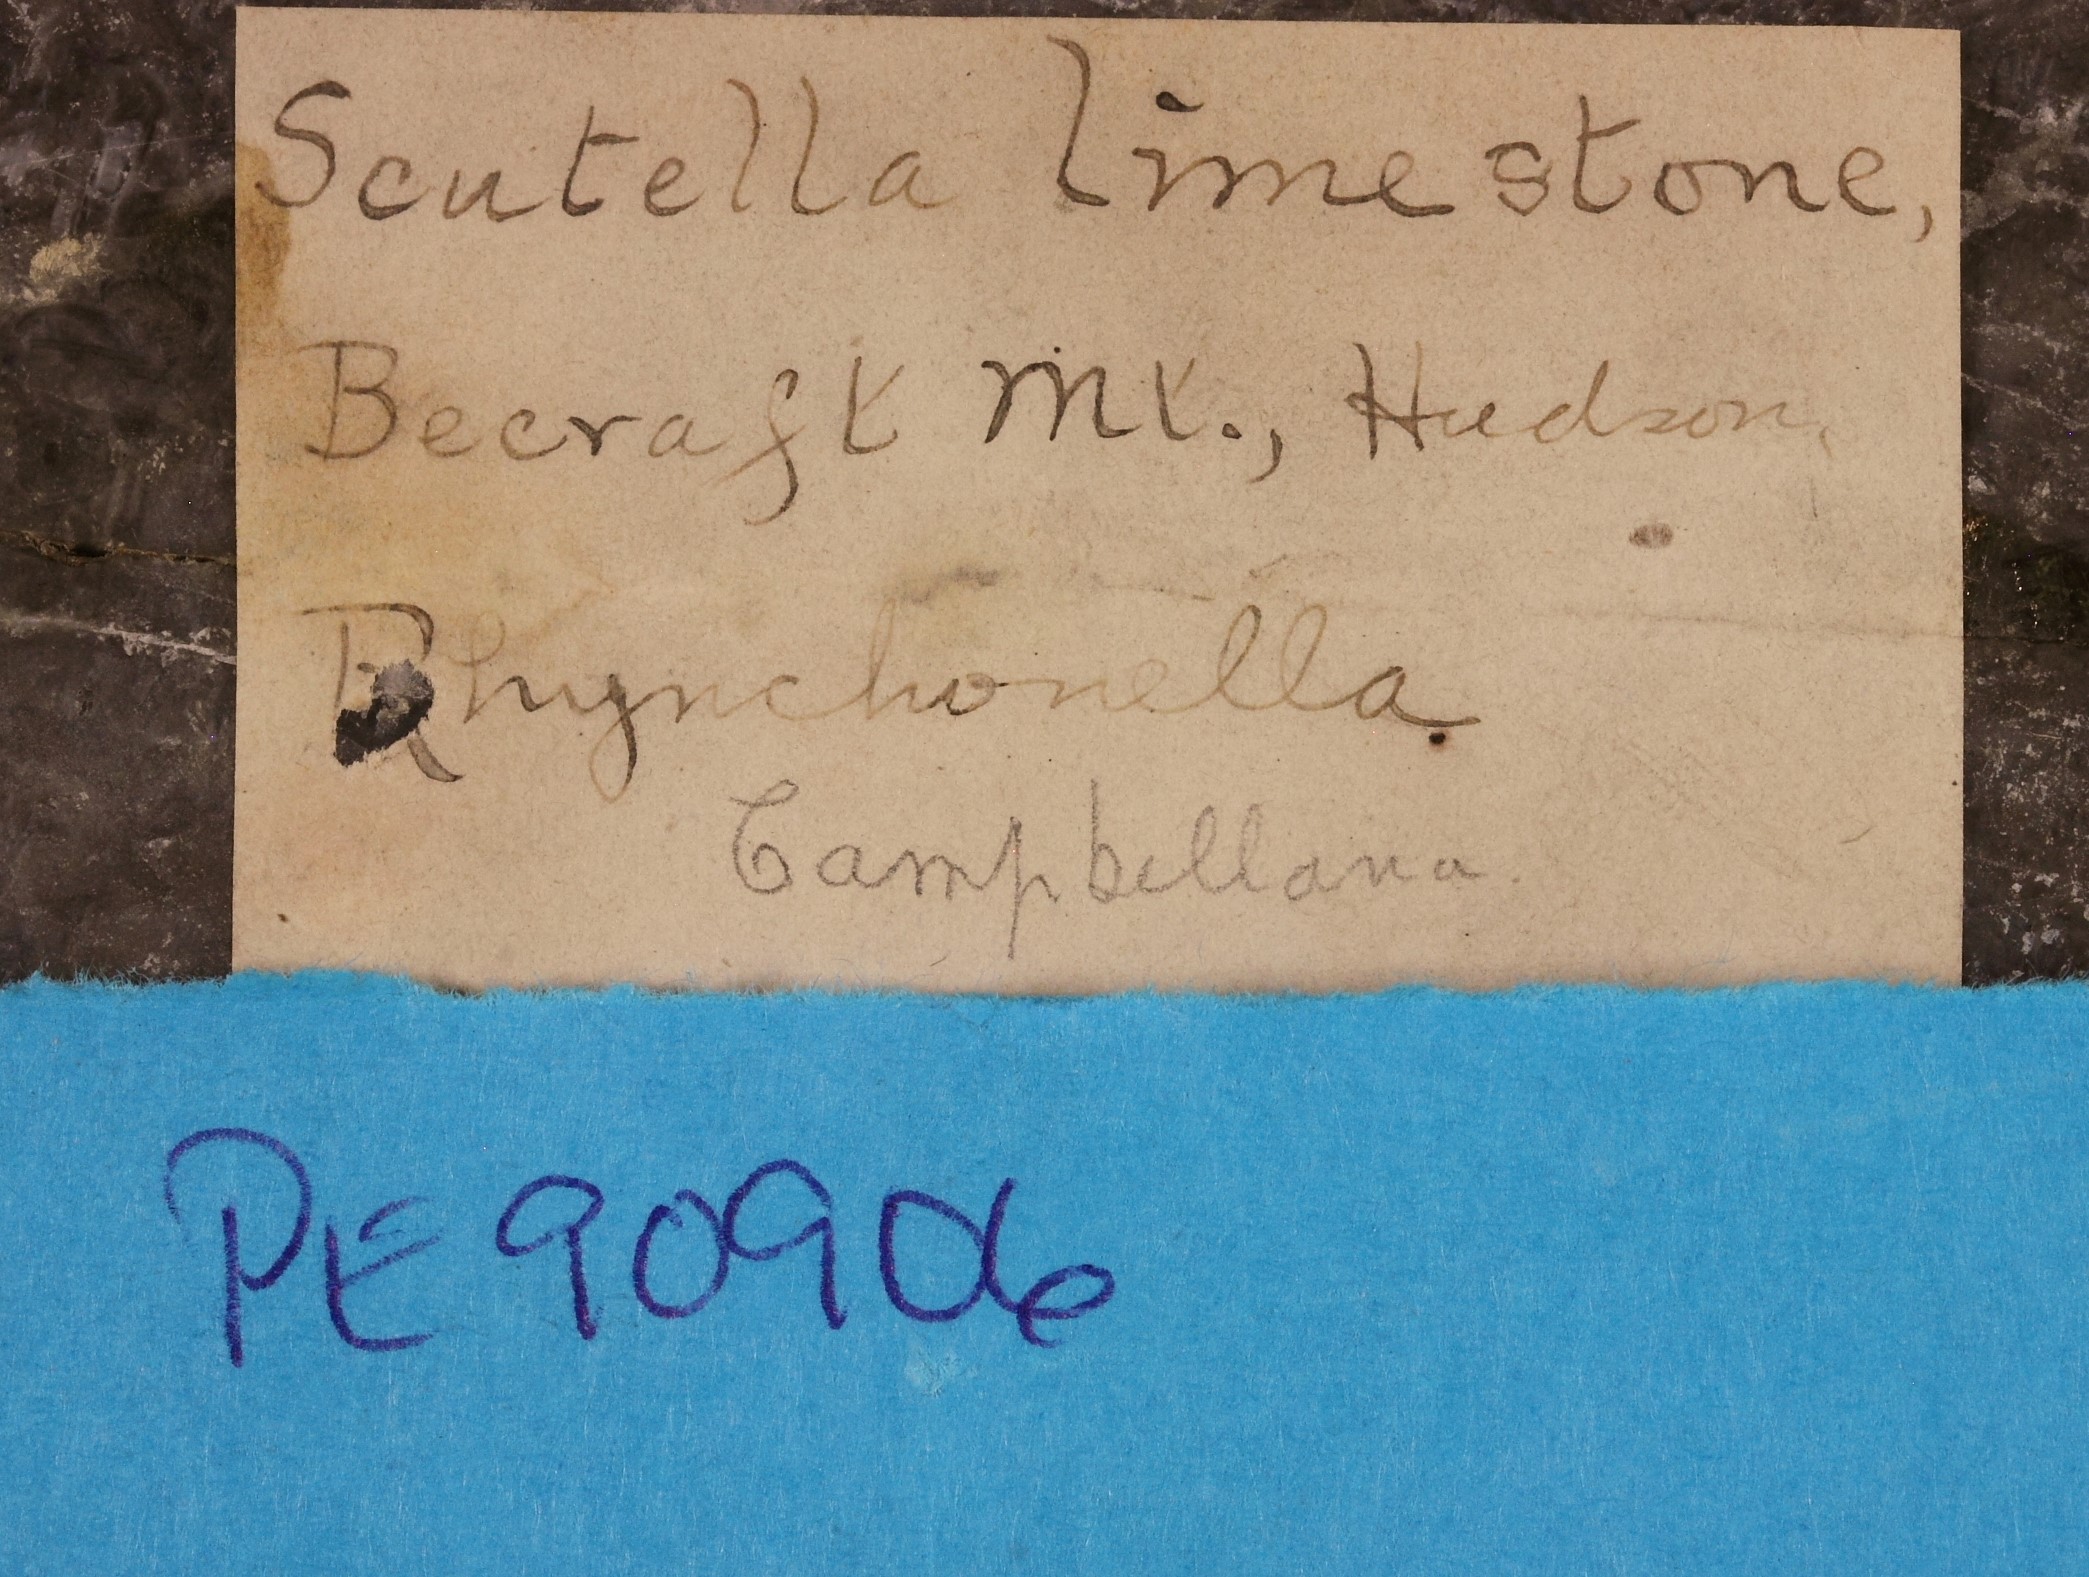 Scutella limestone,
Becraft Mt., Hudson,
Rhynchonella
Campbellana.
PE90906